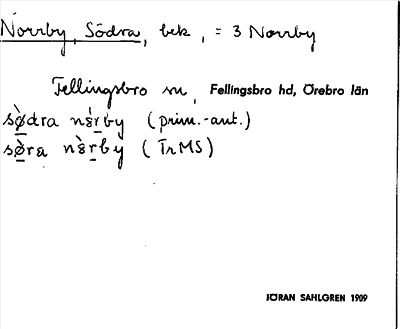 Norrby, Södra, bek, = 3 Norrby
Fellingsbro sn, Fellingsbro hd, Örebro län
sø̀dra nè̱rby (prim.-ant.)
sø̀ra nè̱rby (TrMS)
JÖRAN SAHLGREN 1909